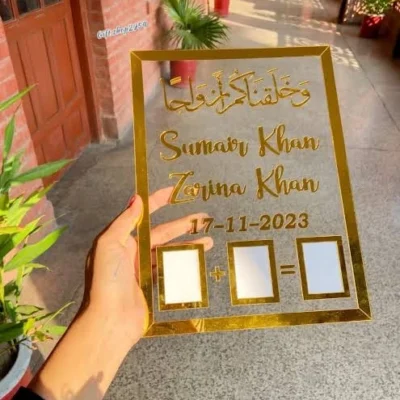 وخلقنكم أزواجا
Sumair Khan
Zarina Khan
17-11-2023
+ =